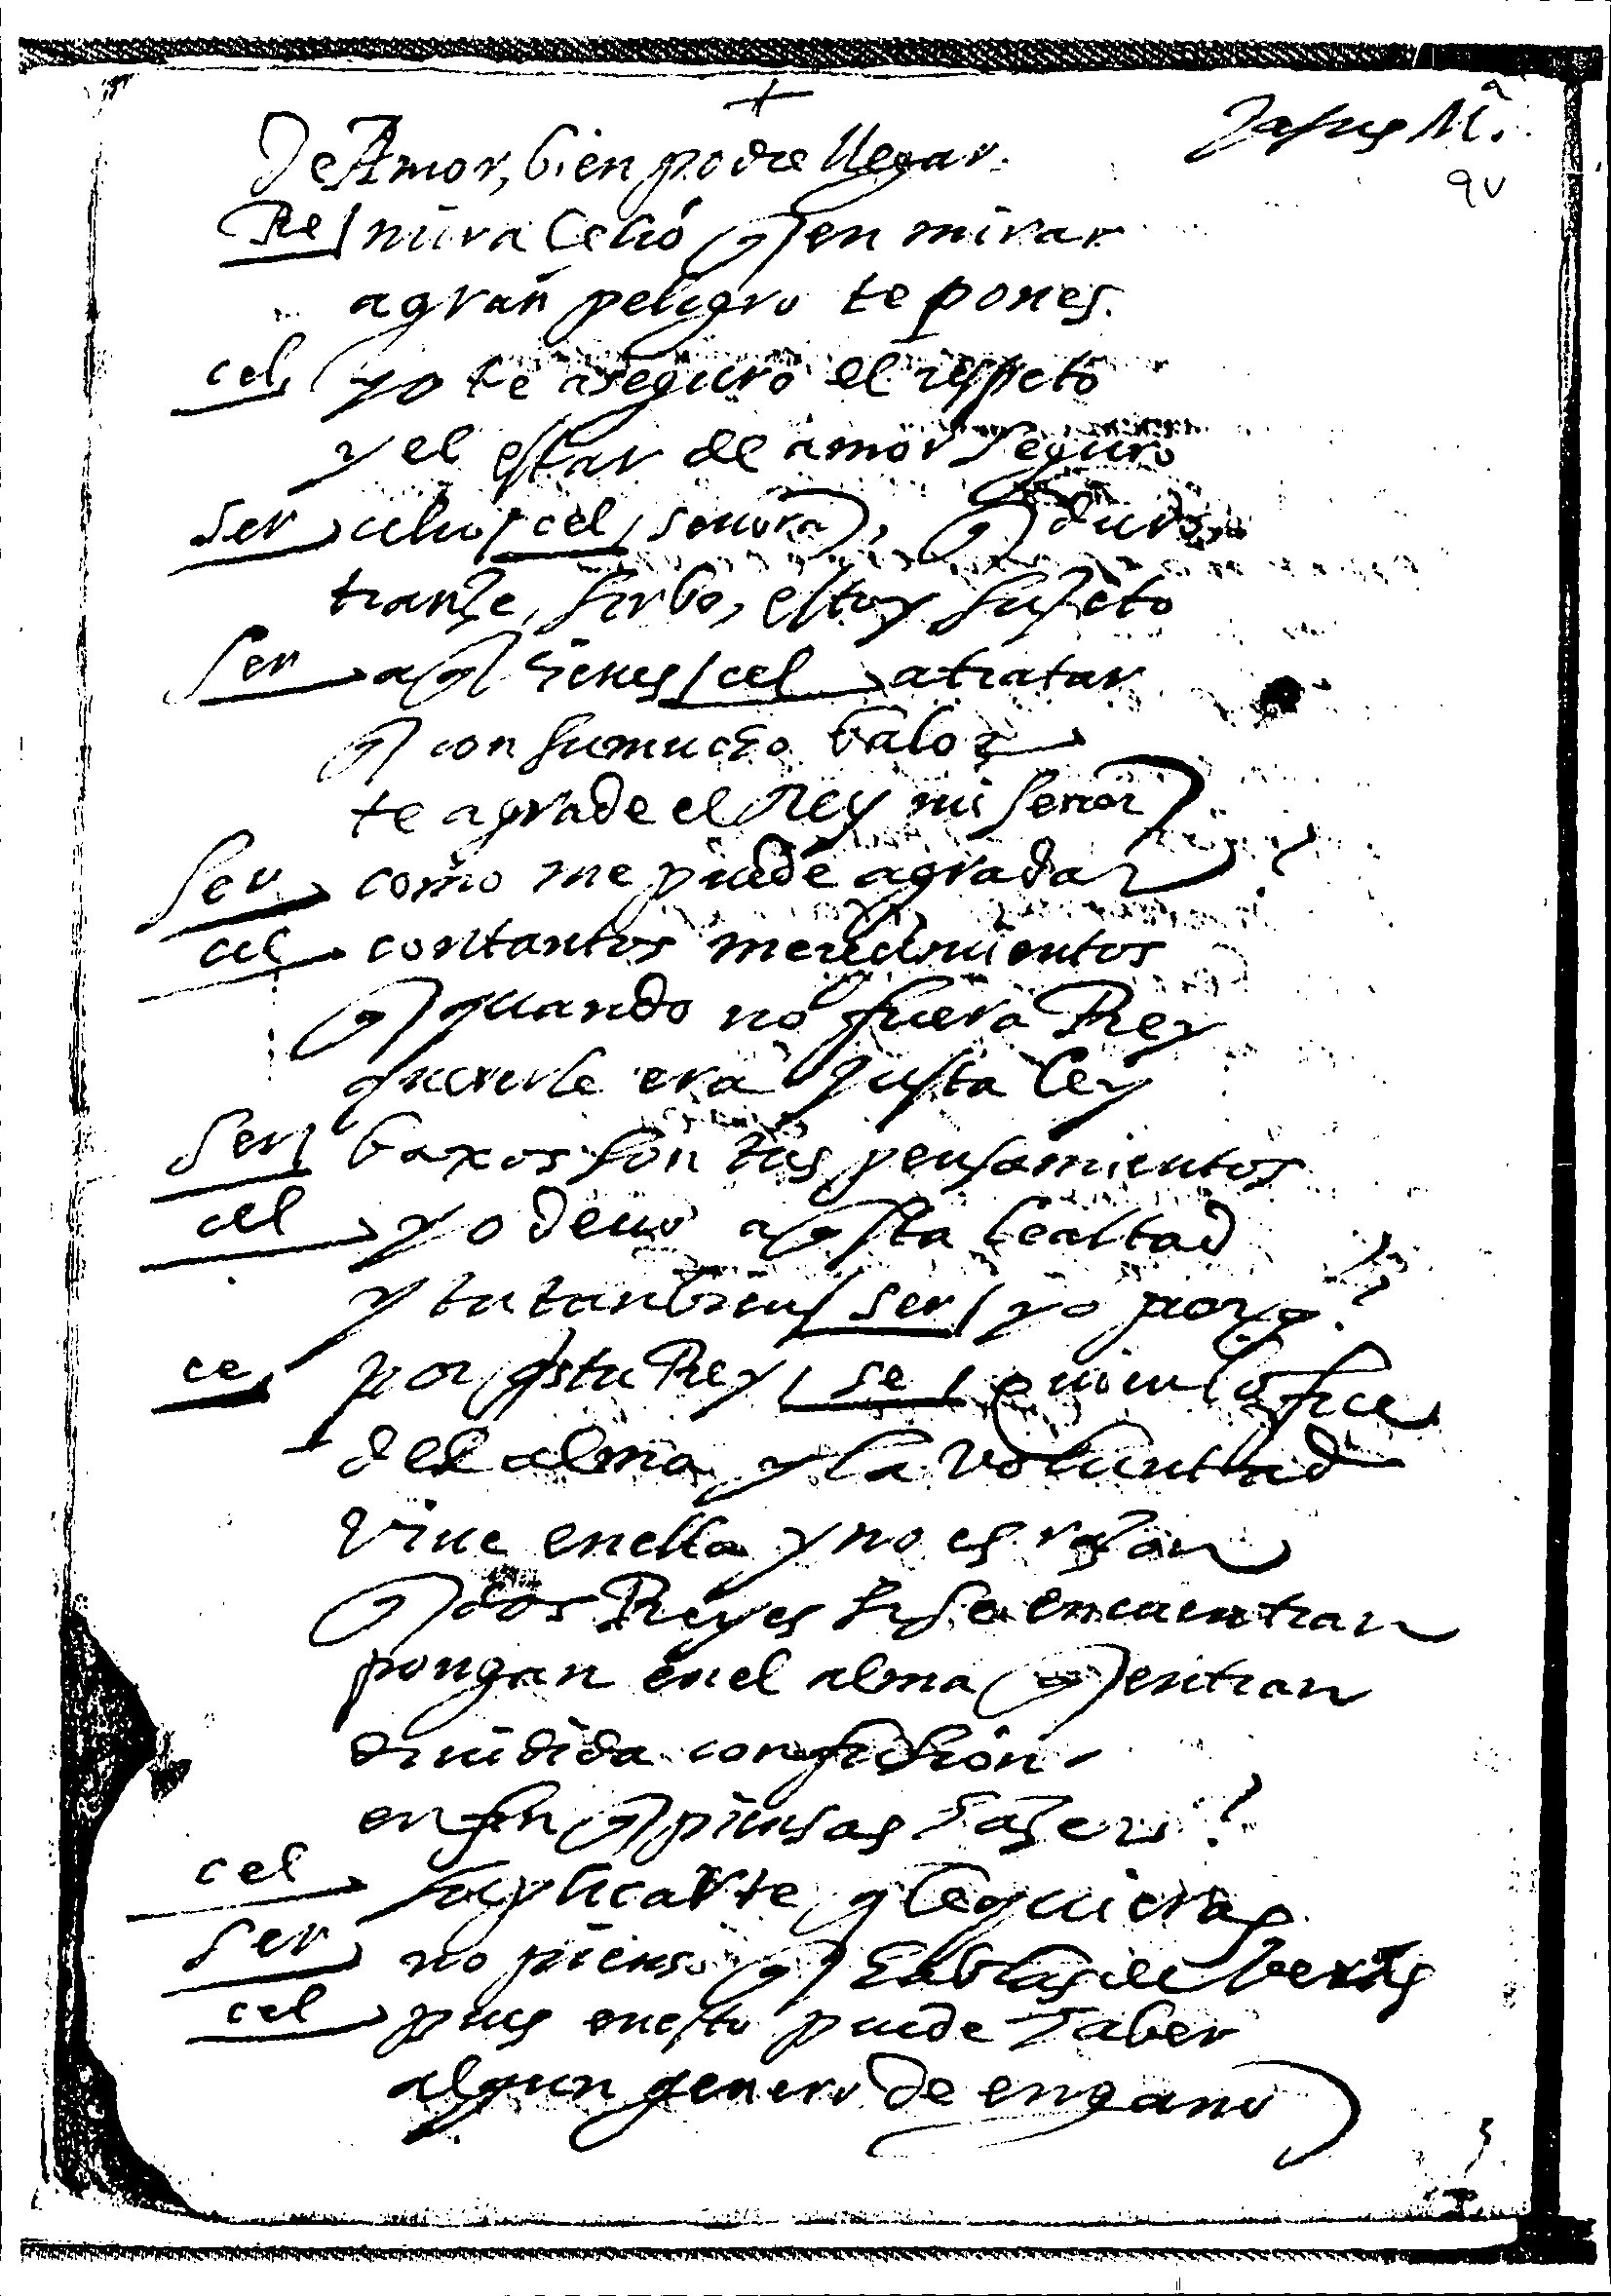 +
Jesus Mª
9v
de Amor, bien podre llegar.
Re mira Celio q en mirar
a gran peligro te pones.
cel yo te aseguro el respeto
y el estar de amor seguro
ser celio cel señora, q duro
tranze, sirbo, estoy sujeto
ser a q bienes cel a tratar
q con su mucho balor
te agrade el Rey mi señor
ser como me puede agradar
cel con tantos merecimientos
q quando no fuera Rey
quererle era justa ley
ser baxos son tus pensamientos
cel yo deuo a q̃sta lealtad
y tu tanbien ser yo por q?
ce por q̃s tu Rey se quien lo fue
del alma y la voluntad
viue en ella y no es razon
q dos Reyes si se encuentran
pongan en el alma q entran
diuidida confusion.
en fin q piensas hazer?
cel suplicarte q le quieras
ser no pienso q hablas de beras
cel pues en esto puede haber
algun genero de engano